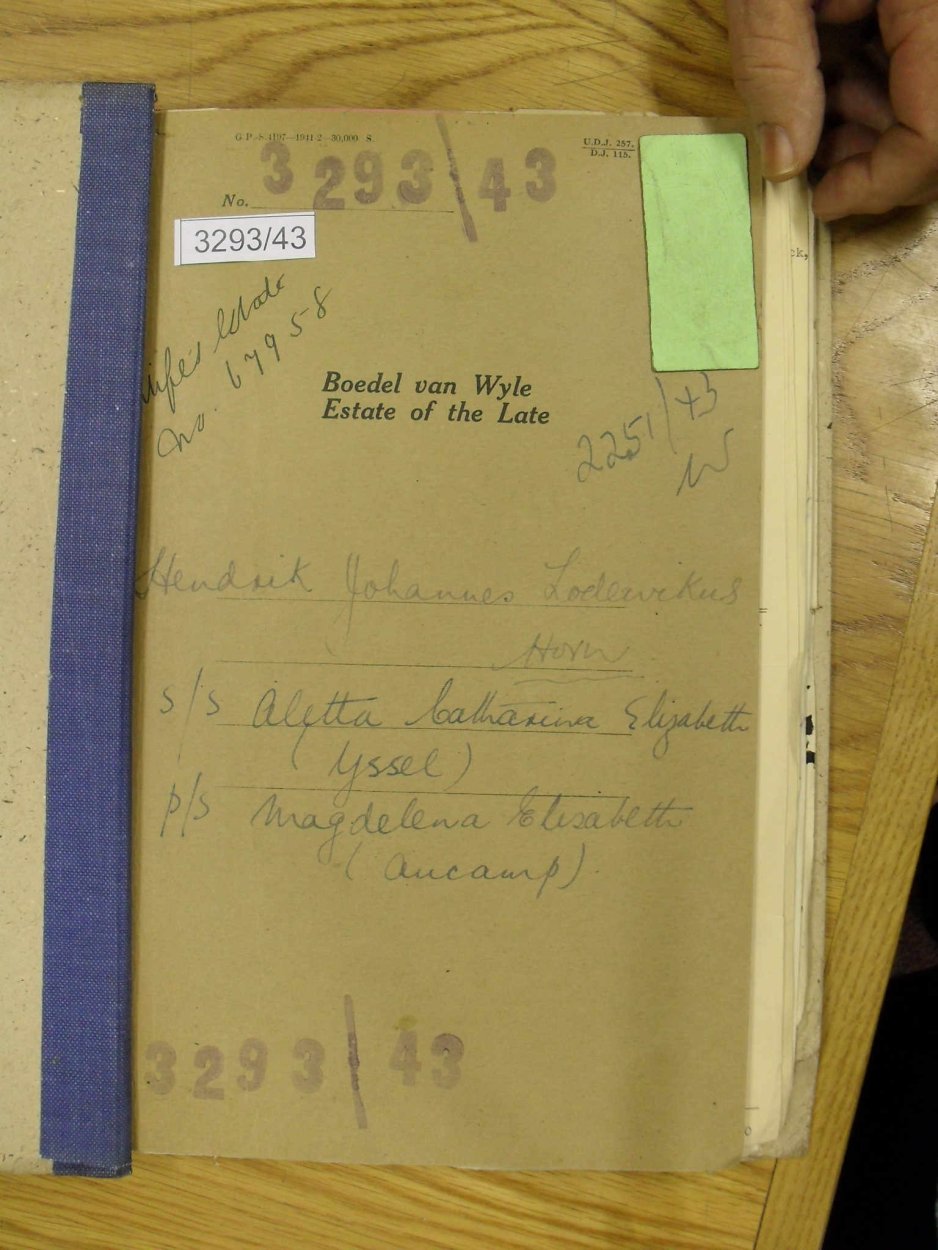 G.P.-S.4197-1941-2-30,000 S.
U.D.J. 257.
D.J. 115.
No. 3293/43
3293/43
Wife's Estate
No. 67958
Boedel van Wyle
Estate of the Late
2251/43
Hendrik Johannes Lodewikus
Horn
s/s Aletta Catharina Elizabeth
(Yssel)
p/s Magdelena Elisabeth
(Aucamp).
3293/43